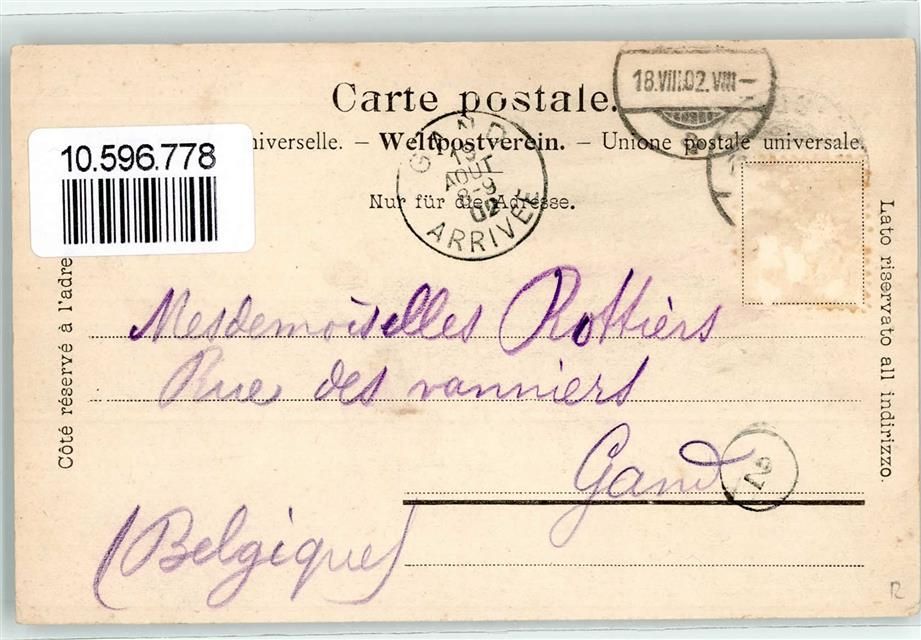 Carte postale.
18.VIII.02.VIII–
10.596.778
niverselle. – Weltpostverein. – Unione postale universale.
GAND
19
AOUT
8-9
02
ARRIVÉE
Nur für die Adresse.
Côté réservé à l'adre
Lato riservato all indirizzo.
Mesdemoiselles Rottiers
Rue des vanniers
Gand
(Belgique)
R